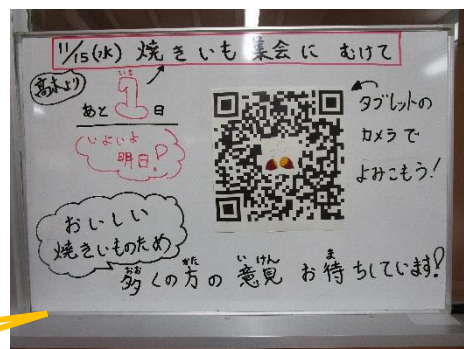 11/15(水) 焼きいも集会に むけて
高木より
あと1日
いち
いよいよ
明日!
タブレットの
カメラで
よみこもう!
おいしい
焼きいものため
多くの方の意見お待ちしています!
おお かた い けん ま